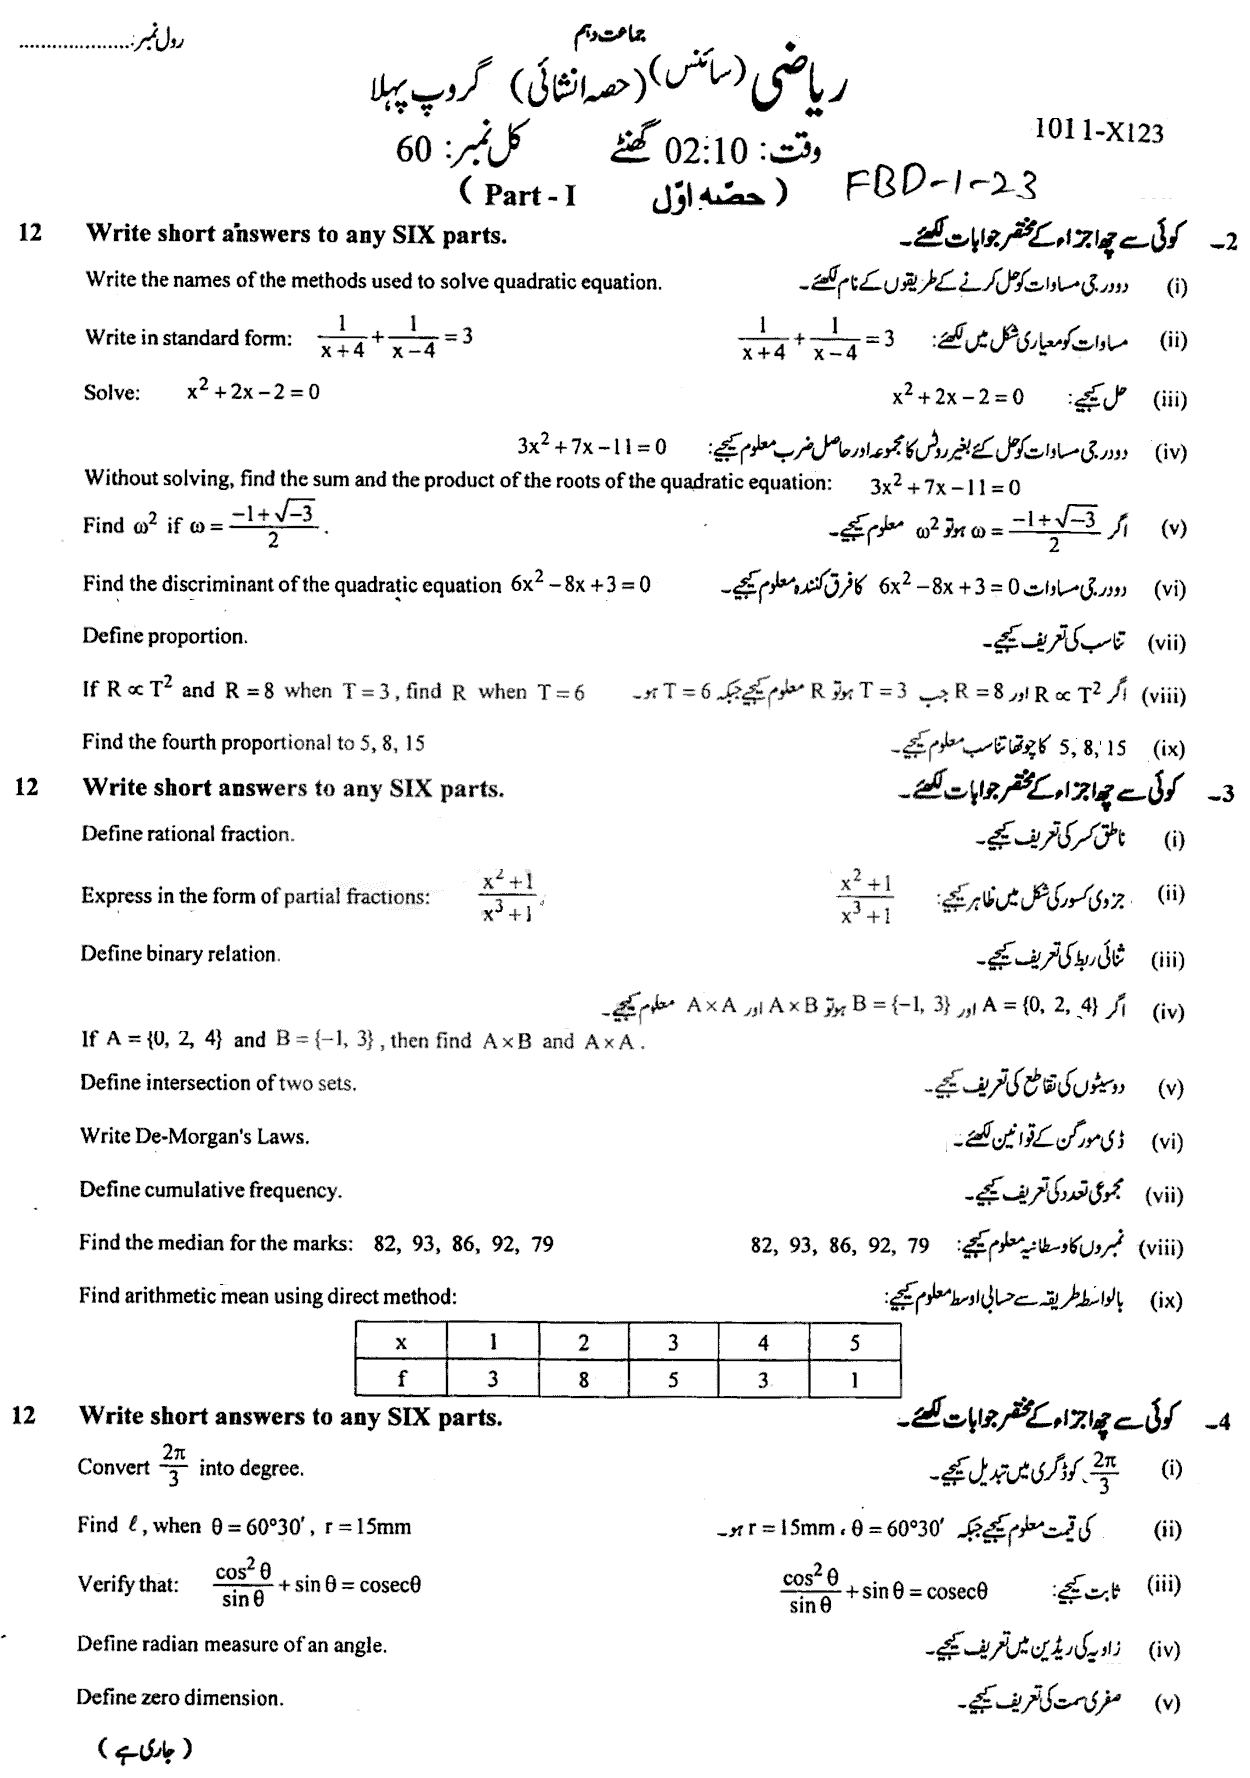 رول نمبر:....................
جماعت دہم
ریاضی (سائنس) (حصہ انشائی) گروپ پہلا
1011-X123
وقت: 02:10 گھنٹے کل نمبر: 60
FBD-1-23
( حصّہ اوّل Part - I )
12 Write short answers to any SIX parts. کوئی سے چھ اجزاء کے مختصر جوابات لکھئے۔ 2۔
Write the names of the methods used to solve quadratic equation. دو درجی مساوات کو حل کرنے کے طریقوں کے نام لکھئے۔ (i)
Write in standard form: 1/(x+4) + 1/(x−4) = 3 مساوات کو معیاری شکل میں لکھئے: 1/(x+4) + 1/(x−4) = 3 (ii)
Solve: x² + 2x − 2 = 0 حل کیجیے: x² + 2x − 2 = 0 (iii)
دو درجی مساوات کو حل کئے بغیر روٹس کا مجموعہ اور حاصل ضرب معلوم کیجیے: 3x² + 7x − 11 = 0 (iv)
Without solving, find the sum and the product of the roots of the quadratic equation: 3x² + 7x − 11 = 0
Find ω² if ω = (−1+√−3)/2 . اگر ω = (−1+√−3)/2 ہو تو ω² معلوم کیجیے۔ (v)
Find the discriminant of the quadratic equation 6x² − 8x + 3 = 0 دو درجی مساوات 6x² − 8x + 3 = 0 کا فرق کنندہ معلوم کیجیے۔ (vi)
Define proportion. تناسب کی تعریف کیجیے۔ (vii)
If R ∝ T² and R = 8 when T = 3, find R when T = 6 اگر R ∝ T² اور R = 8 جب T = 3 ہو تو R معلوم کیجیے جبکہ T = 6 ہو۔ (viii)
Find the fourth proportional to 5, 8, 15 5, 8, 15 کا چوتھا تناسب معلوم کیجیے۔ (ix)
12 Write short answers to any SIX parts. کوئی سے چھ اجزاء کے مختصر جوابات لکھئے۔ 3۔
Define rational fraction. ناطق کسر کی تعریف کیجیے۔ (i)
Express in the form of partial fractions: (x²+1)/(x³+1) جزوی کسور کی شکل میں ظاہر کیجیے: (x²+1)/(x³+1) (ii)
Define binary relation. ثنائی ربط کی تعریف کیجیے۔ (iii)
اگر A = {0, 2, 4} اور B = {−1, 3} ہو تو A×B اور A×A معلوم کیجیے۔ (iv)
If A = {0, 2, 4} and B = {−1, 3}, then find A×B and A×A.
Define intersection of two sets. دو سیٹوں کی تقاطع کی تعریف کیجیے۔ (v)
Write De-Morgan's Laws. ڈی مورگن کے قوانین لکھئے۔ (vi)
Define cumulative frequency. مجموعی تعدد کی تعریف کیجیے۔ (vii)
Find the median for the marks: 82, 93, 86, 92, 79 نمبروں کا وسطانیہ معلوم کیجیے: 82, 93, 86, 92, 79 (viii)
Find arithmetic mean using direct method: بالواسطہ طریقہ سے حسابی اوسط معلوم کیجیے: (ix)
x 1 2 3 4 5
f 3 8 5 3 1
12 Write short answers to any SIX parts. کوئی سے چھ اجزاء کے مختصر جوابات لکھئے۔ 4۔
Convert 2π/3 into degree. 2π/3 کو ڈگری میں تبدیل کیجیے۔ (i)
Find ℓ, when θ = 60°30′, r = 15mm کی قیمت معلوم کیجیے جبکہ θ = 60°30′ ، r = 15mm ہو۔ (ii)
Verify that: cos²θ/sinθ + sinθ = cosecθ ثابت کیجیے: cos²θ/sinθ + sinθ = cosecθ (iii)
Define radian measure of an angle. زاویہ کی ریڈین میں تعریف کیجیے۔ (iv)
Define zero dimension. صفری سمت کی تعریف کیجیے۔ (v)
( جاری ہے )